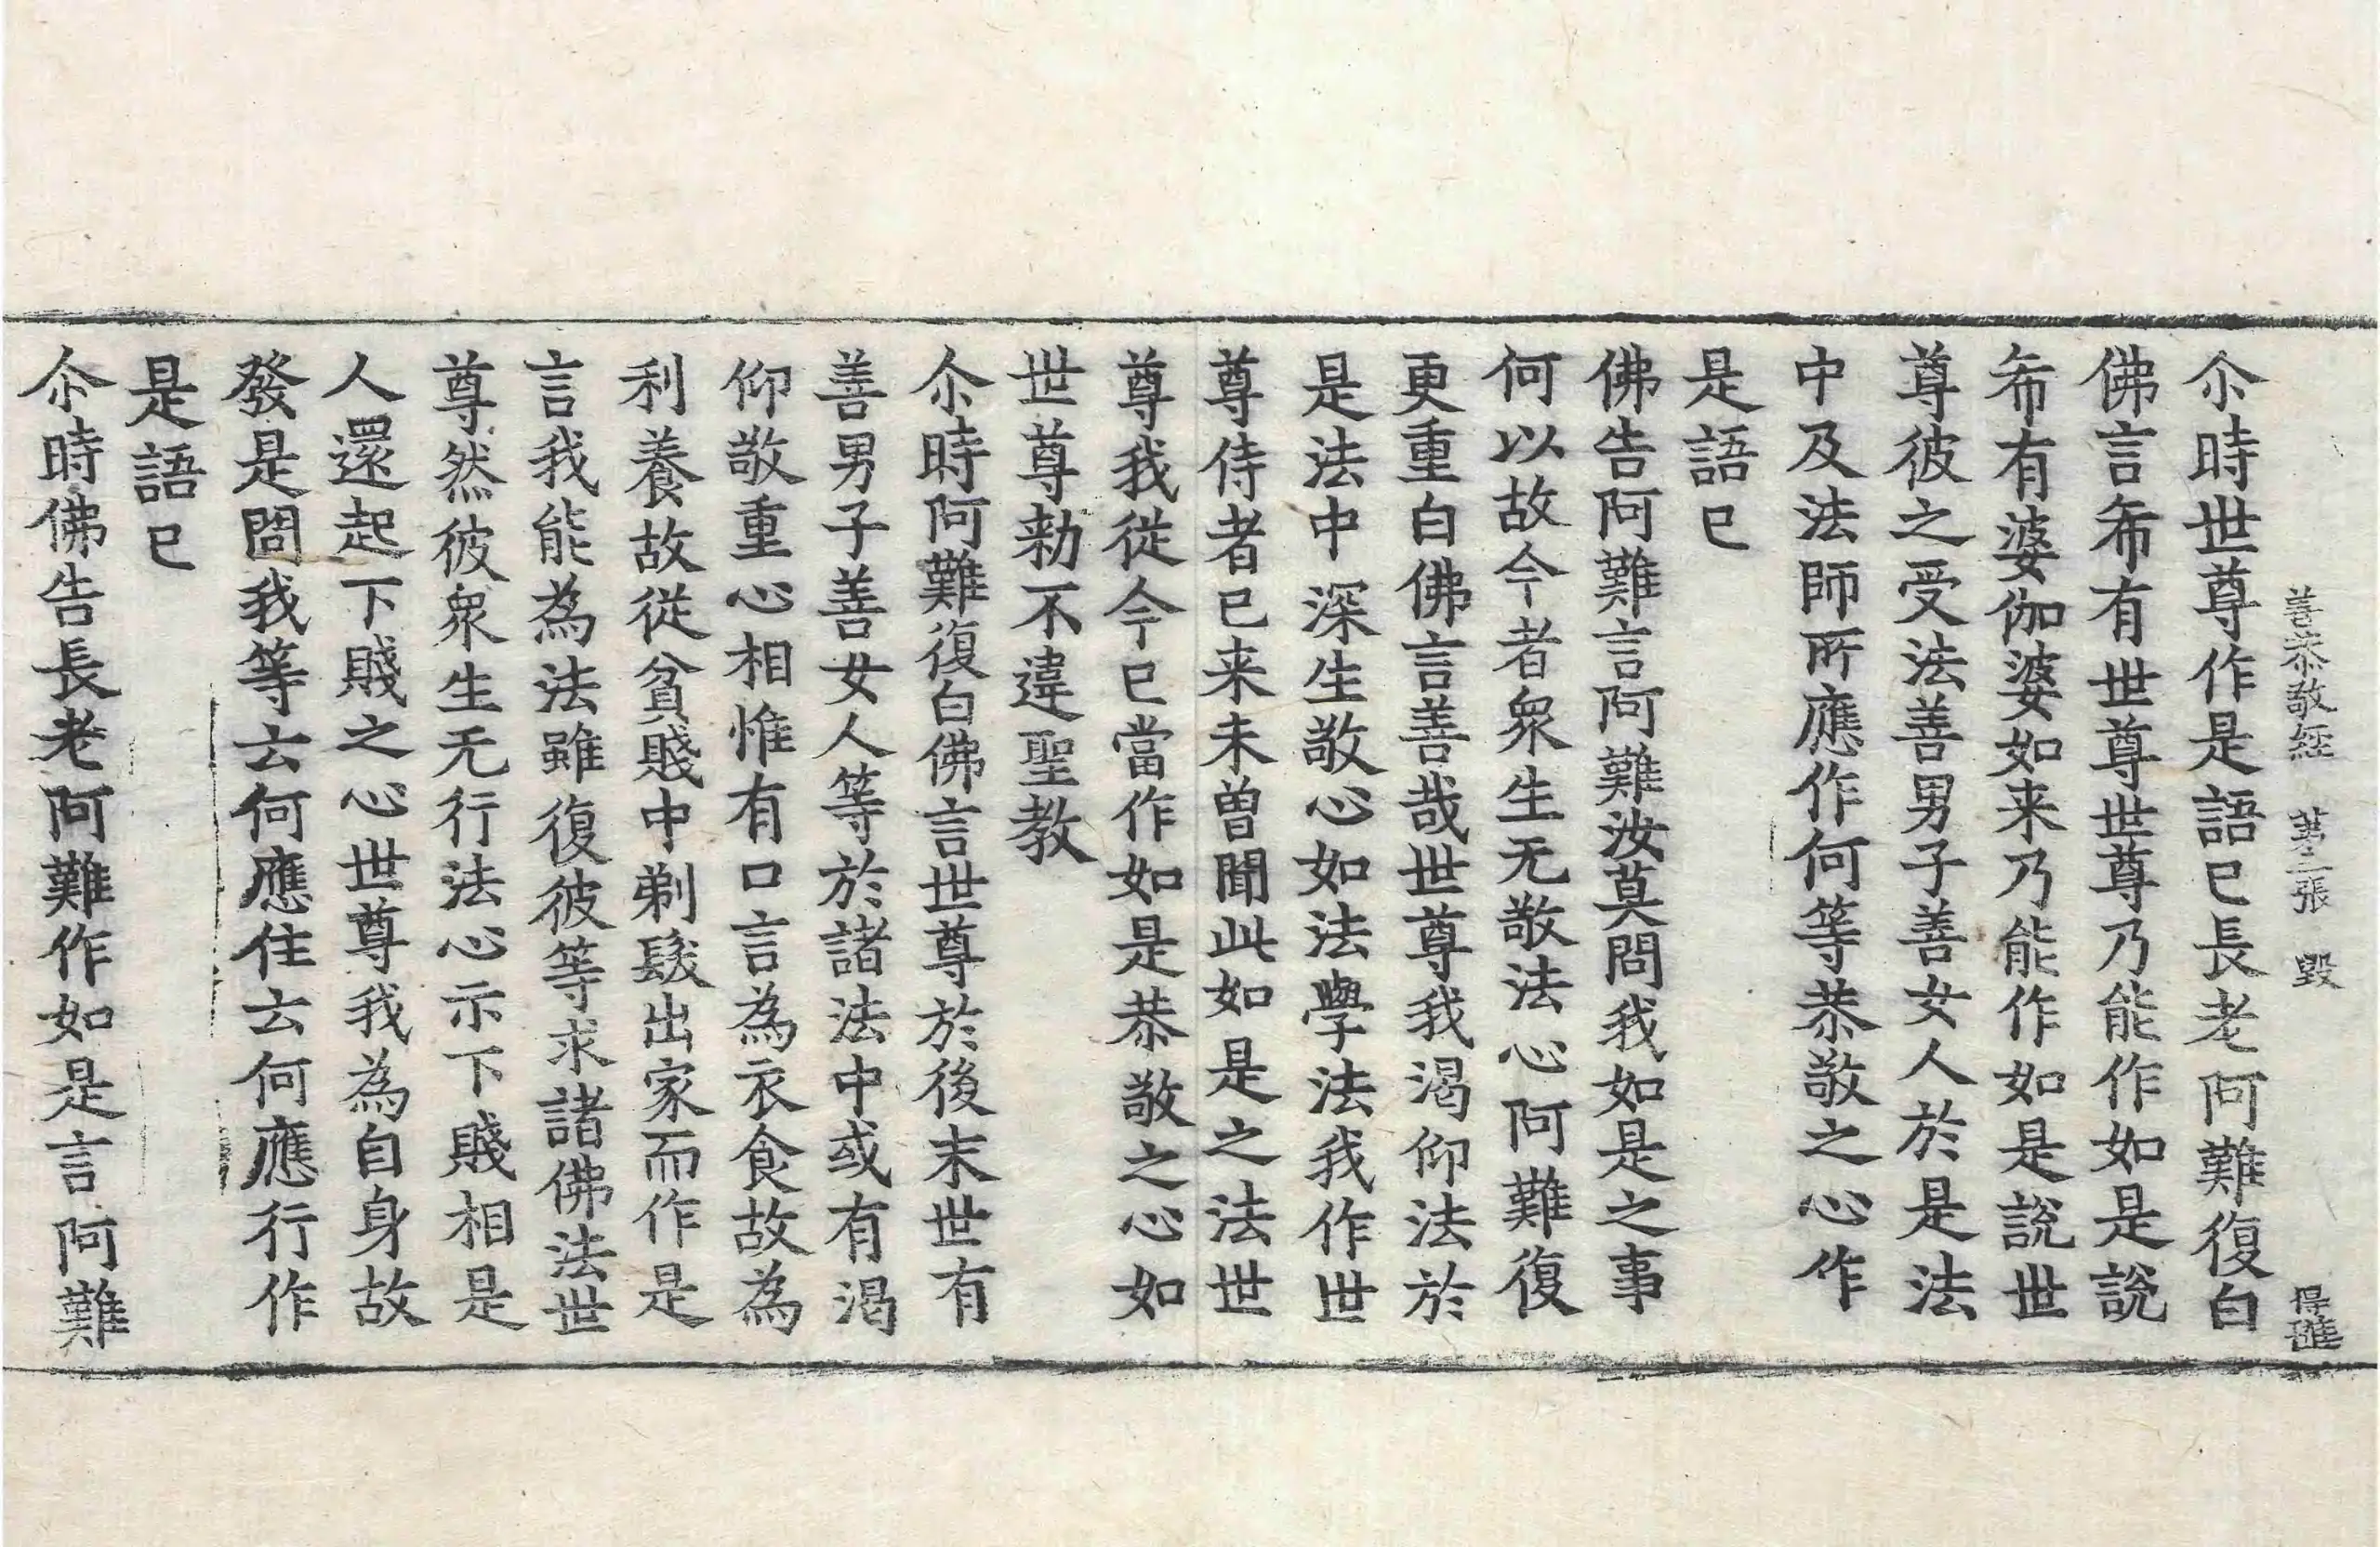 善恭敬經　苐張　毀
尒時世尊作是語已長老阿難復白
佛言希有世尊世尊乃能作如是說
希有婆伽婆如来乃能作如是說世
尊彼之受法善男子善女人於是法
中及法師所應作何等恭敬之心作
是語已
佛告阿難言阿難汝莫問我如是之事
何以故今者衆生无敬法心阿難復
更重白佛言善哉世尊我渴仰法於
是法中深生敬心如法學法我作世
尊侍者已来未曽聞此如是之法世
尊我從今已當作如是恭敬之心如
世尊勑不違聖教
尒時阿難復白佛言世尊於後末世有
善男子善女人等於諸法中或有渴
仰敬重心相惟有口言為衣食故為
利養故從貧賤中剃髮出家而作是
言我能為法雖復彼等求諸佛法世
尊然彼衆生无行法心示下賤相是
人還起下賤之心世尊我為自身故
發是問我等云何應住云何應行作
是語已
尒時佛告長老阿難作如是言阿難